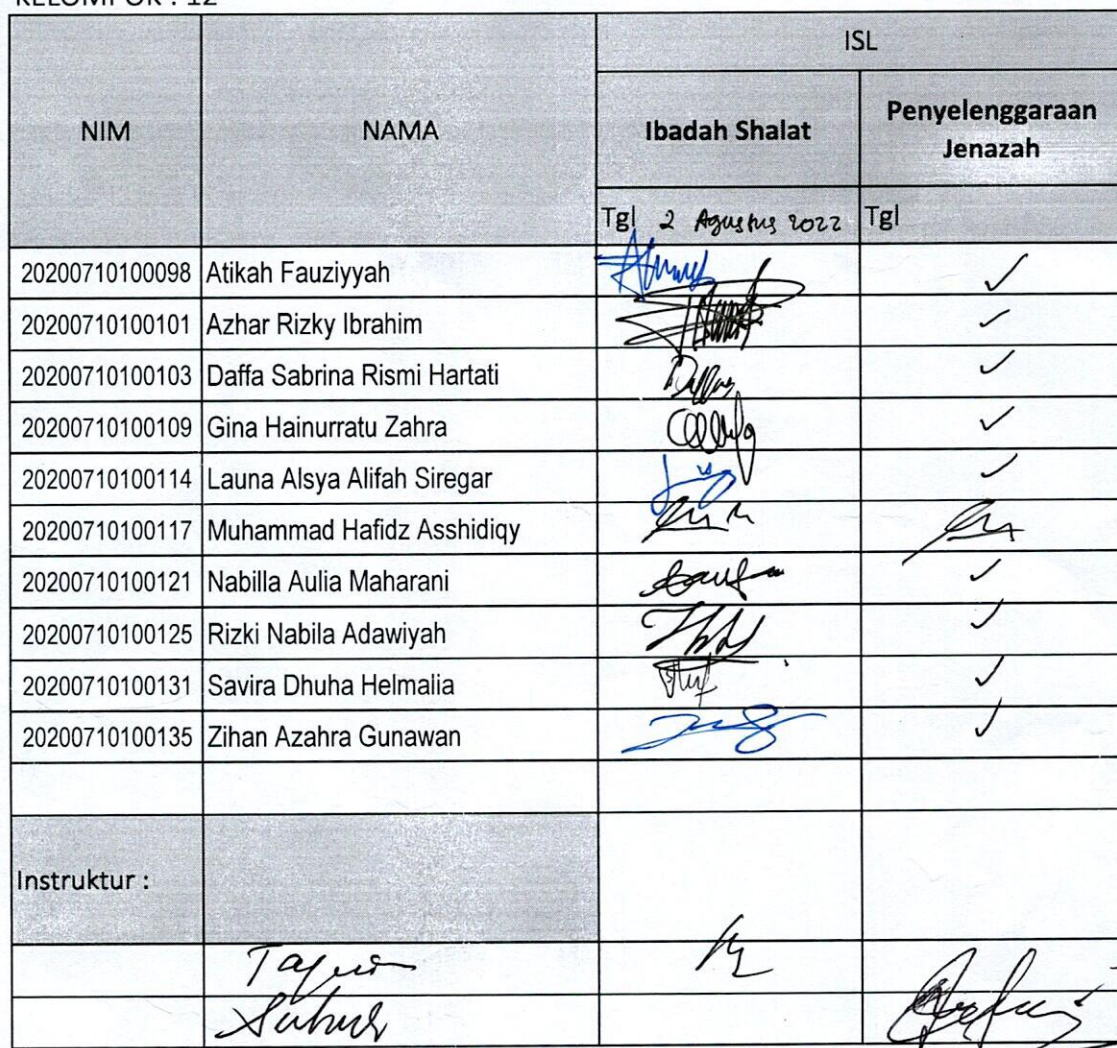 KELOMPOK : 12
ISL
NIM NAMA Ibadah Shalat Penyelenggaraan
Jenazah
Tgl 2 Agustus 2022 Tgl
20200710100098 Atikah Fauziyyah ✓
20200710100101 Azhar Rizky Ibrahim ✓
20200710100103 Daffa Sabrina Rismi Hartati ✓
20200710100109 Gina Hainurratu Zahra ✓
20200710100114 Launa Alsya Alifah Siregar ✓
20200710100117 Muhammad Hafidz Asshidiqy
20200710100121 Nabilla Aulia Maharani ✓
20200710100125 Rizki Nabila Adawiyah ✓
20200710100131 Savira Dhuha Helmalia ✓
20200710100135 Zihan Azahra Gunawan ✓
Instruktur :